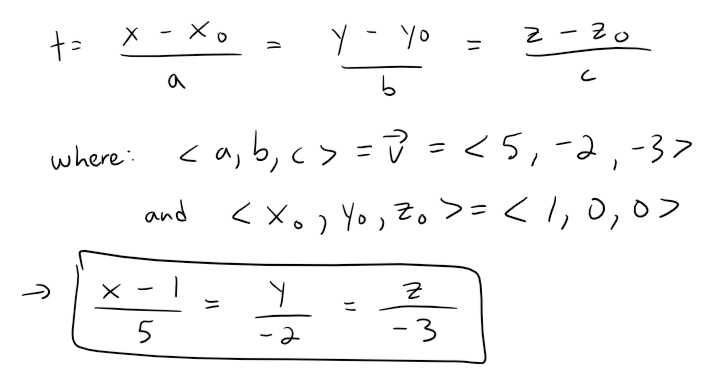 t = x - x₀ / a = y - y₀ / b = z - z₀ / c
where: < a, b, c > = v⃗ = < 5, -2, -3 >
and < x₀, y₀, z₀ > = < 1, 0, 0 >
→ x - 1 / 5 = y / -2 = z / -3